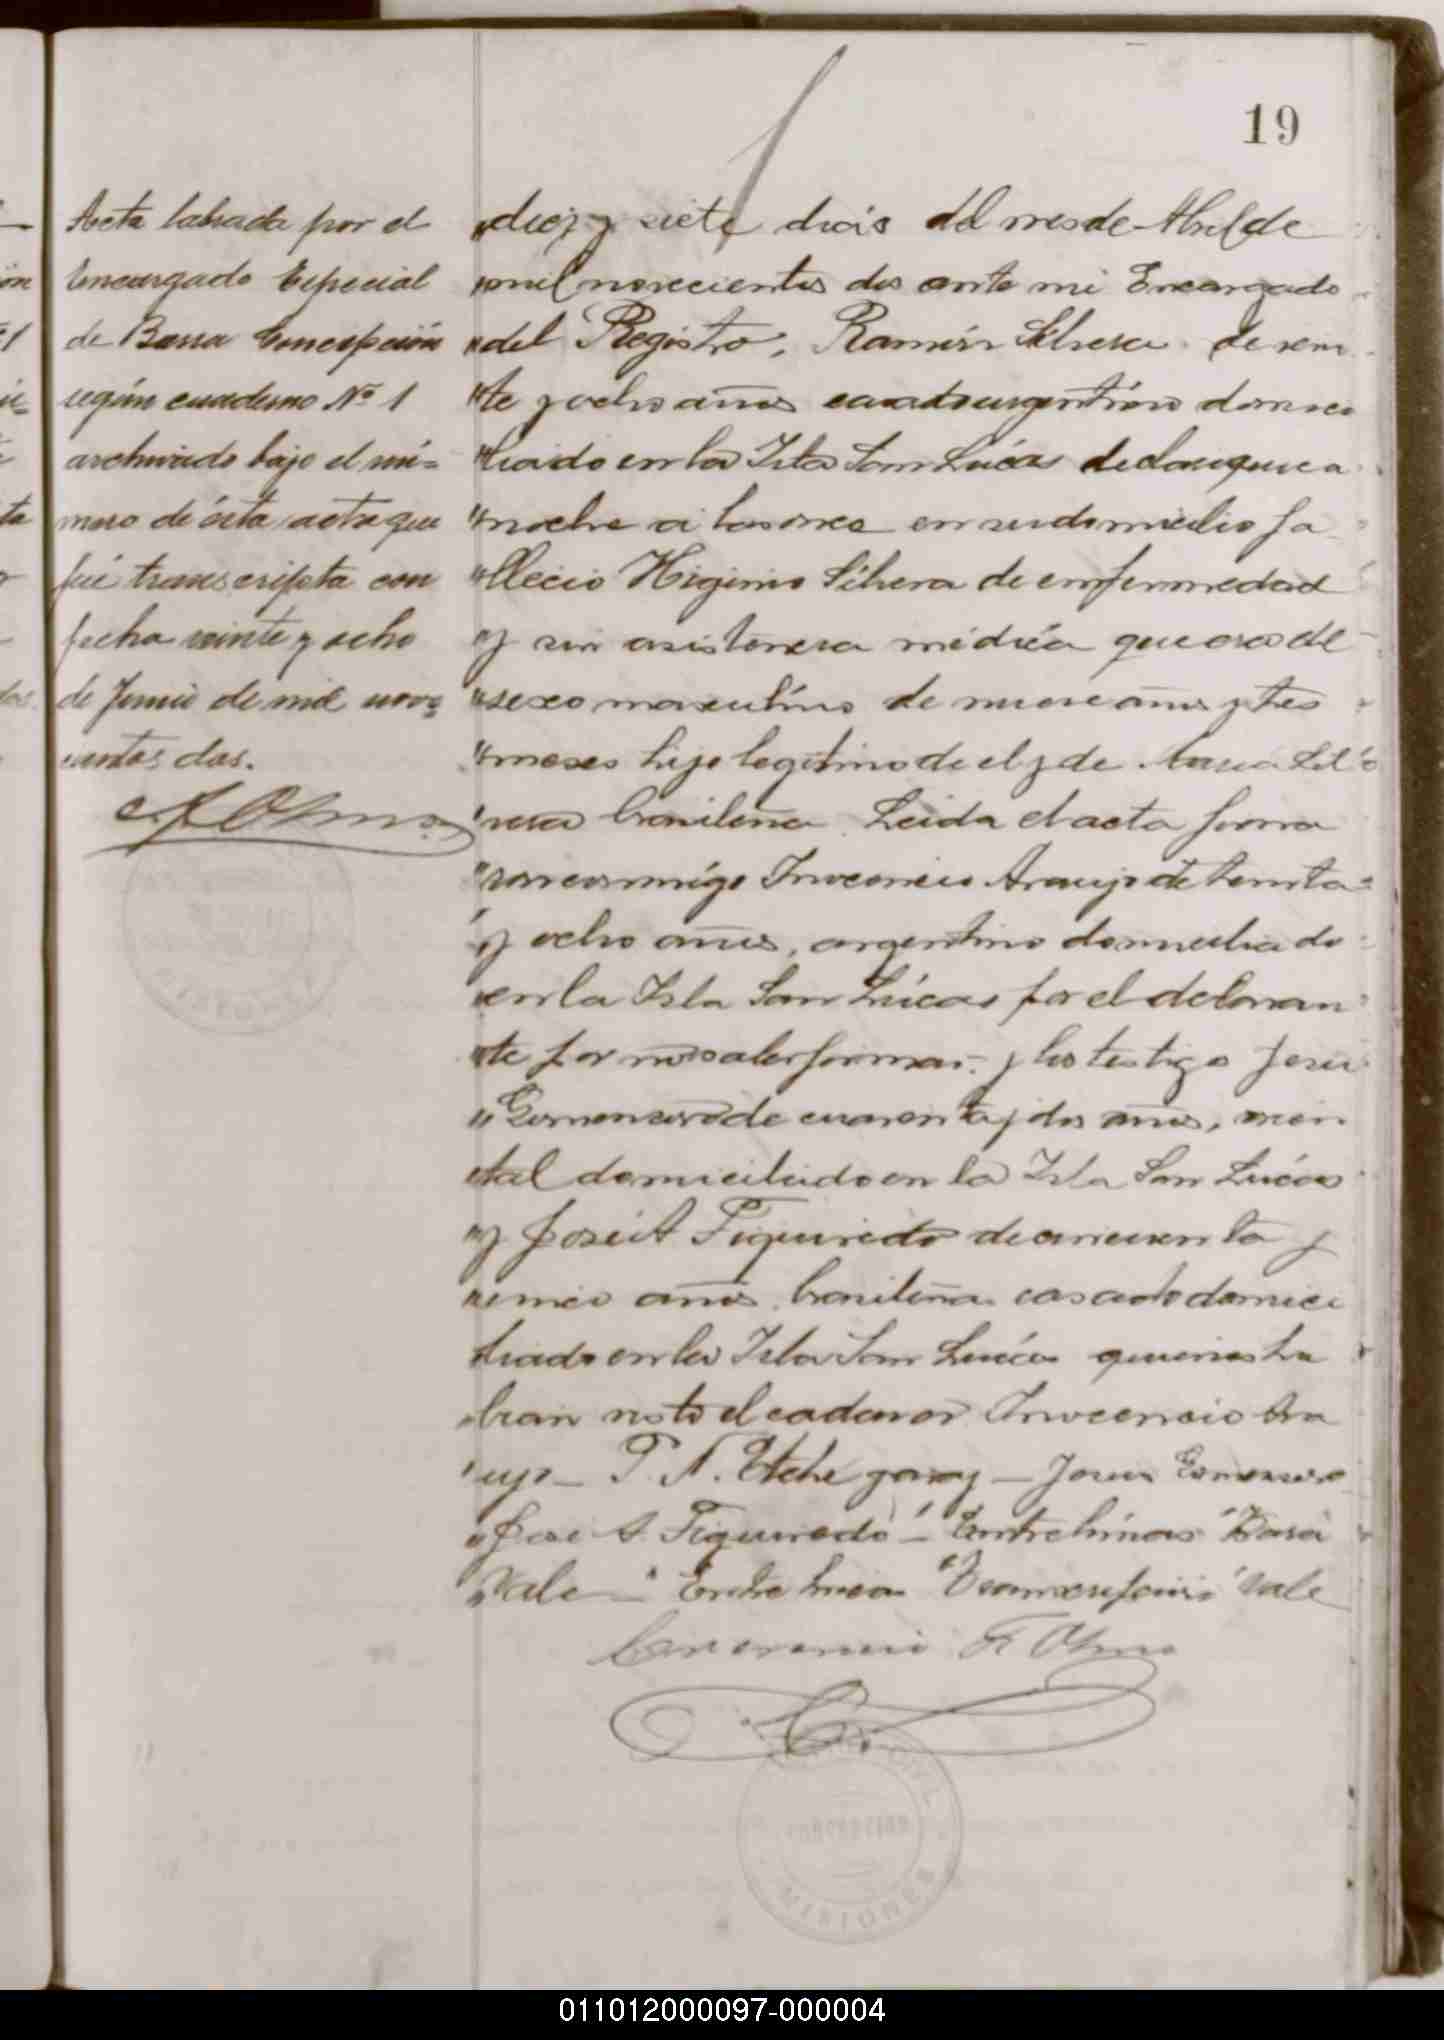 19
Acta labrada por el
Encargado Especial
de Barra Concepción
según cuaderno Nº 1
archivado bajo el nú=
mero de ésta acta que
fué transcripta con
fecha veinte y ocho
de Junio de mil nove=
cientos dos.
"diez y siete dias del mes de Abril de
"mil novecientos dos ante mi Encargado
"del Registro, Ramón Silvera de vein
"te y ocho años casado argentino domici
"liado en la Isla San Lúcas declaro que a
"noche a las once en su domicilio fa
"llecio Higinio Silvera de enfermedad
"y sin asistencia médica que era de
"sexo masculino de nueve años y tres
"meses hijo legitimo de el y de Maria Sil
"vera brasilera. Leida el acta firma
"ron conmigo Inocencio Araujo de treinta
"y ocho años, argentino domicilia do
"en la Isla San Lúcas por el declaran
"te por no saber firmar y los testigo Jesus
" de cuarenta y dos años, orien
"tal domiciliado en la Isla San Lúcas
"y José A Figueredo de cincuenta y
"cinco años brasilera casado domici
liado en la Isla San Lucas quienes ha
"bian visto el cadaver Inocencio Ara
"ujo — P. N. Etchegaray — Jesus
"José A. Figueredo" — Entre lineas "
"Vale — " Entre linea "Transcripcion" vale
MISIONES
REGISTRO CIVIL
MISIONES
011012000097-000004